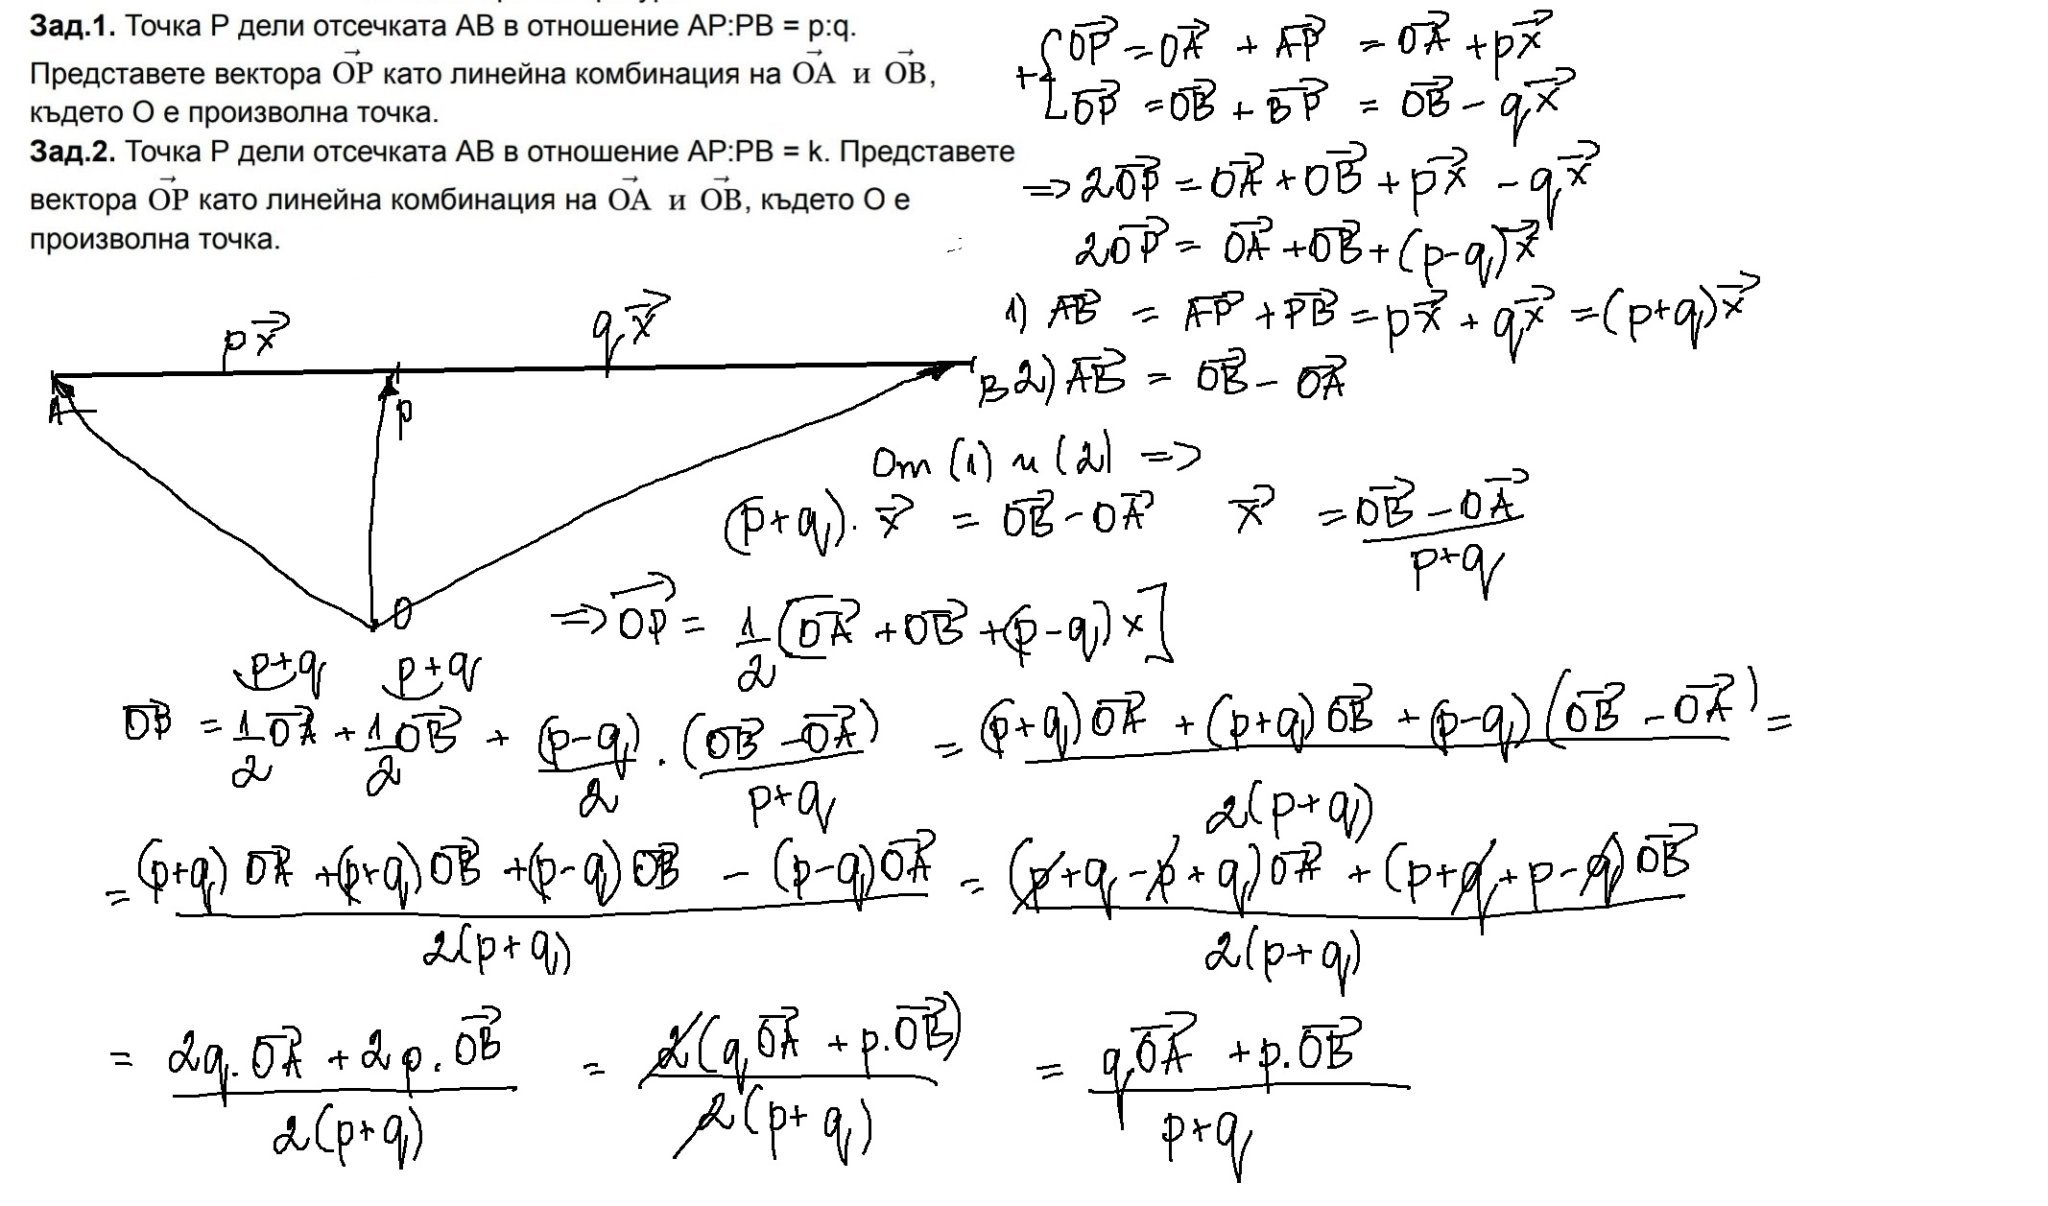 Зад.1. Точка P дели отсечката AB в отношение AP:PB = p:q.
Представете вектора \vec{OP} като линейна комбинация на \vec{OA} и \vec{OB},
където O е произволна точка.
Зад.2. Точка P дели отсечката AB в отношение AP:PB = k. Представете
вектора \vec{OP} като линейна комбинация на \vec{OA} и \vec{OB}, където O е
произволна точка.
+{ \vec{OP} = \vec{OA} + \vec{AP} = \vec{OA} + p\vec{x}
\vec{OP} = \vec{OB} + \vec{BP} = \vec{OB} - q\vec{x}
=> 2\vec{OP} = \vec{OA} + \vec{OB} + p\vec{x} - q\vec{x}
2\vec{OP} = \vec{OA} + \vec{OB} + (p-q)\vec{x}
1) \vec{AB} = \vec{AP} + \vec{PB} = p\vec{x} + q\vec{x} = (p+q)\vec{x}
2) \vec{AB} = \vec{OB} - \vec{OA}
p\vec{x} q\vec{x}
A P B
O
От (1) и (2) =>
(p+q).\vec{x} = \vec{OB} - \vec{OA} \vec{x} = \frac{\vec{OB} - \vec{OA}}{p+q}
=> \vec{OP} = \frac{1}{2}[\vec{OA} + \vec{OB} + (p-q)x]
p+q p+q
\vec{OP} = \frac{1}{2}\vec{OA} + \frac{1}{2}\vec{OB} + \frac{(p-q)}{2} . \frac{(\vec{OB} - \vec{OA})}{p+q} = \frac{(p+q)\vec{OA} + (p+q)\vec{OB} + (p-q)(\vec{OB} - \vec{OA})}{2(p+q)} =
= \frac{(p+q)\vec{OA} + (p+q)\vec{OB} + (p-q)\vec{OB} - (p-q)\vec{OA}}{2(p+q)} = \frac{(p+q-p+q)\vec{OA} + (p+q+p-q)\vec{OB}}{2(p+q)}
= \frac{2q.\vec{OA} + 2p.\vec{OB}}{2(p+q)} = \frac{2(q\vec{OA} + p.\vec{OB})}{2(p+q)} = \frac{q.\vec{OA} + p.\vec{OB}}{p+q}